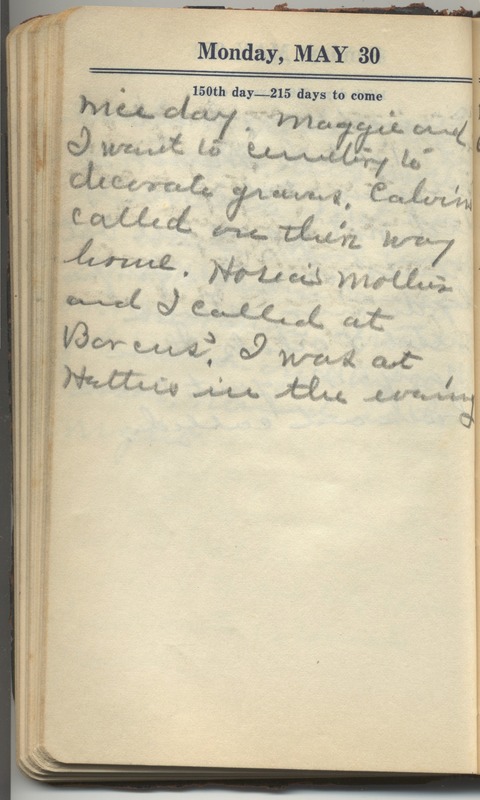 Monday, MAY 30
150th day—215 days to come
Nice day. Maggie and
I went to cemetery to
decorate graves. Calvins
called on their way
home. Hosea's Mother
and I called at
Barcus'. I was at
Hatties in the evening